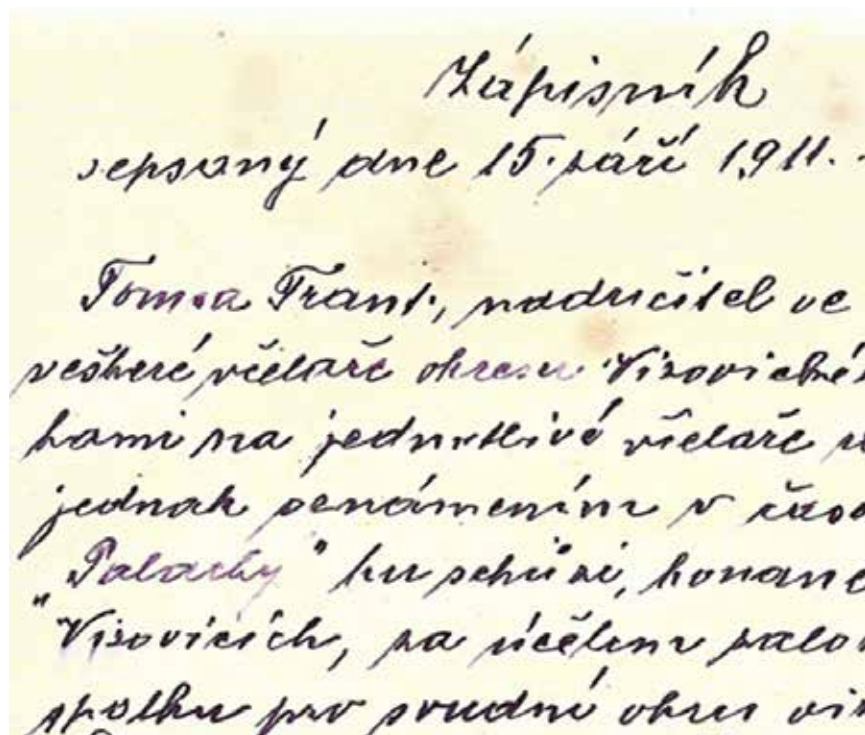 Zápisník
sepsaný dne 15. září 1911.
Tomsa Frant., nadučitel ve
veškeré včelaře okresu Vizovické
kami na jednotlivé včelaře
jednak oznámením v časo
"Palacký" ku schůzi, konané
Vizovicích, za účelem založ
spolku pro soudní okres viz